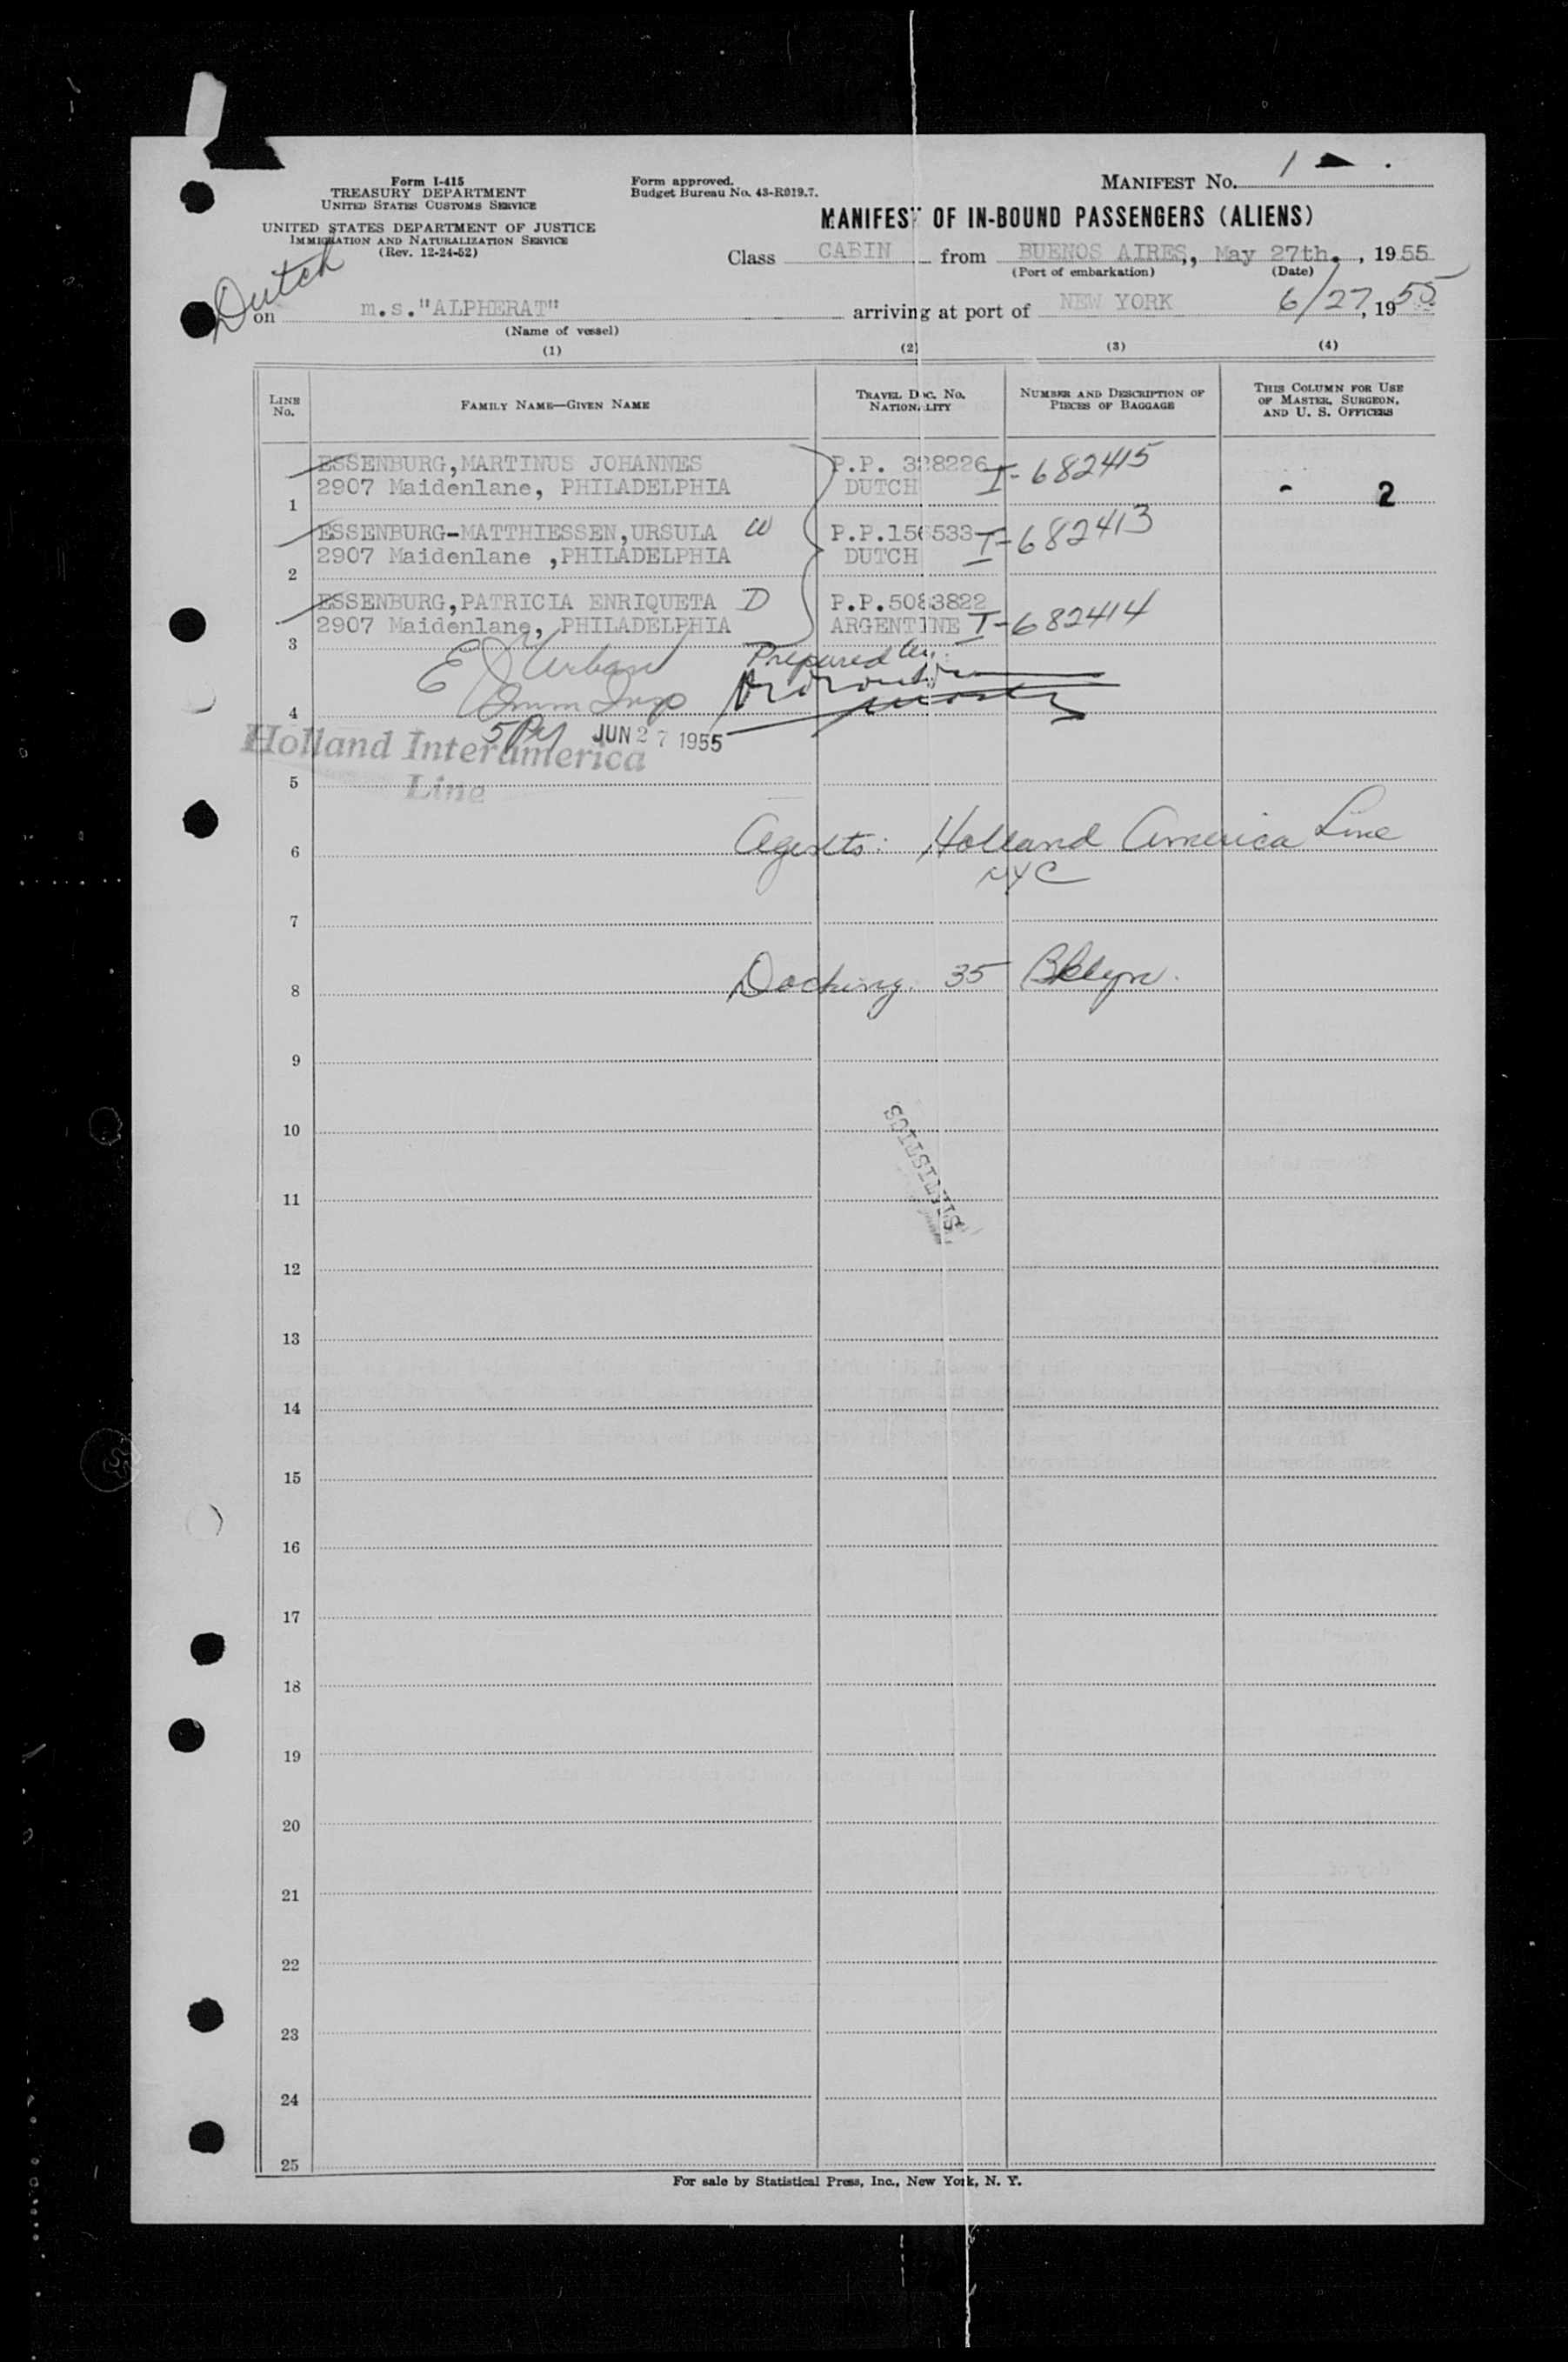 Form I-415
TREASURY DEPARTMENT
UNITED STATES CUSTOMS SERVICE
UNITED STATES DEPARTMENT OF JUSTICE
IMMIGRATION AND NATURALIZATION SERVICE
(Rev. 12-24-52)
Form approved.
Budget Bureau No. 43-R019.7.
MANIFEST No. 1
MANIFEST OF IN-BOUND PASSENGERS (ALIENS)
Class CABIN from BUENOS AIRES,, May 27th. , 1955
(Port of embarkation) (Date)
Dutch
on m.s."ALPHERAT" arriving at port of NEW YORK 6/27, 1955
(Name of vessel)
(1) (2) (3) (4)
LINE No. FAMILY NAME—GIVEN NAME TRAVEL DOC. No. NATIONALITY NUMBER AND DESCRIPTION OF PIECES OF BAGGAGE THIS COLUMN FOR USE OF MASTER, SURGEON, AND U. S. OFFICERS
ESSENBURG,MARTINUS JOHANNES P.P. 328226 I-682415
2907 Maidenlane, PHILADELPHIA DUTCH - 2
1
ESSENBURG-MATTHIESSEN,URSULA W P.P.156533 I-682413
2907 Maidenlane ,PHILADELPHIA DUTCH
2
ESSENBURG,PATRICIA ENRIQUETA D P.P.5083822
2907 Maidenlane, PHILADELPHIA ARGENTINE I-682414
3
E J Urban Prepared by:
Imm Insp
4
5 JUN 27 1955
Holland Interamerica
Line
5
Agents: Holland America Line
6
NYC
7
Docking: 35 Bklyn.
8
9
10
STATISTICS
11
12
13
14
15
16
17
18
19
20
21
22
23
24
25
For sale by Statistical Press, Inc., New York, N. Y.